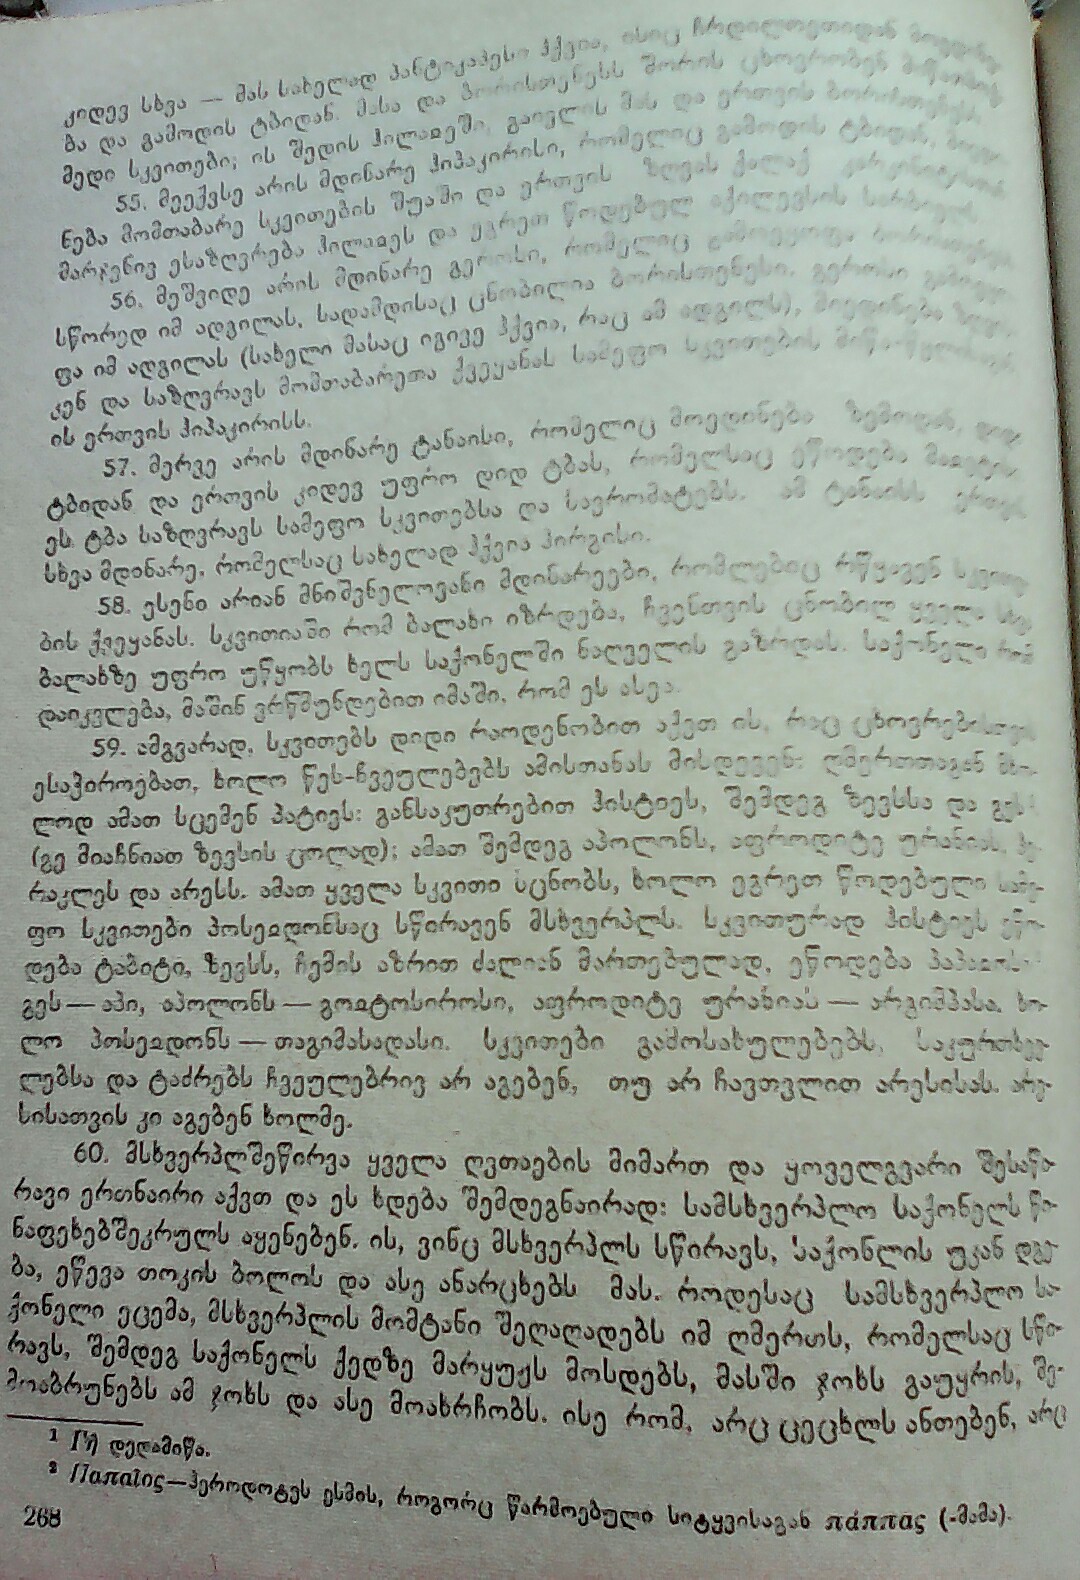 კიდევ სხვა — მას სახელად პანტიკაპესი ჰქვია, ისიც ჩრდილოეთიდან
ბა და გამოდის ტბიდან. მასა და ბორისთენესს შორის ცხოვრობენ
მედი სკვითები; ის შედის ჰილაჲეში, გაივლის მას და ერთვის ბორისთენესს.
55. მეექვსე არის მდინარე ჰიპაკირისი, რომელიც გამოდის ტბიდან,
ნება მომთაბარე სკვითების შუაში და ერთვის ზღვას ქალაქ
მარჯვნივ ესაზღვრება ჰილაჲეს და ეგრეთ წოდებულ აქილევსის სარბიელს.
56. მეშვიდე არის მდინარე გეროსი, რომელიც გამოეყოფა ბორისთენესს
სწორედ იმ ადგილას, სადამდისაც ცნობილია ბორისთენესი. გეროსი
ფა იმ ადგილას (სახელი მასაც იგივე ჰქვია, რაც ამ ადგილს), მიედინება
კენ და საზღვრავს მომთაბარეთა ქვეყანას სამეფო სკვითების
ის ერთვის ჰიპაკირისს.
57. მერვე არის მდინარე ტანაისი, რომელიც მოედინება ზემოდან, დიდი
ტბიდან და ერთვის კიდევ უფრო დიდ ტბას, რომელსაც ეწოდება
ეს ტბა საზღვრავს სამეფო სკვითებსა და სავრომატებს. ამ ტანაისს ერთვის
სხვა მდინარე, რომელსაც სახელად ჰქვია ჰირგისი.
58. ესენი არიან მნიშვნელოვანი მდინარეები, რომლებიც რწყავენ
ბის ქვეყანას. სკვითიაში რომ ბალახი იზრდება, ჩვენთვის ცნობილ ყველა სხვა
ბალახზე უფრო უწყობს ხელს საქონელში ნაღველის გაზრდას. საქონელი რომ
დაიკვლება, მაშინ ვრწმუნდებით იმაში, რომ ეს ასეა.
59. ამგვარად, სკვითებს დიდი რაოდენობით აქეთ ის, რაც ცხოვრებისთვის
ესაჭიროებათ, ხოლო წეს-ჩვეულებებს ამისთანას მისდევენ: ღმერთთაგან მხო-
ლოდ ამათ სცემენ პატივს: განსაკუთრებით ჰისტიეს, შემდეგ ზევსსა და გეს¹
(გე მიაჩნიათ ზევსის ცოლად); ამათ შემდეგ აპოლონს, აფროდიტე ურანიას, ჰე-
რაკლეს და არესს. ამათ ყველა სკვითი სცნობს, ხოლო ეგრეთ წოდებული სამე-
ფო სკვითები პოსეჲდონსაც სწირავენ მსხვერპლს. სკვითურად ჰისტიეს ეწო-
დება ტაბიტი, ზევსს, ჩემის აზრით ძალიან მართებულად, ეწოდება
გეს — აპი, აპოლონს — გოჲტოსიროსი, აფროდიტე ურანიას — არგიმპასა, ხო-
ლო პოსეჲდონს — თაგიმასადასი. სკვითები გამოსახულებებს, საკურთხევ-
ლებსა და ტაძრებს ჩვეულებრივ არ აგებენ, თუ არ ჩავთვლით არესისას. არე-
სისათვის კი აგებენ ხოლმე.
60. მსხვერპლშეწირვა ყველა ღვთაების მიმართ და ყოველგვარი შესაწი-
რავი ერთნაირი აქვთ და ეს ხდება შემდეგნაირად: სამსხვერპლო საქონელს წი-
ნაფეხებშეკრულს აყენებენ. ის, ვინც მსხვერპლს სწირავს, საქონლის უკან დგე-
ბა, ეწევა თოკის ბოლოს და ასე ანარცხებს მას. როდესაც სამსხვერპლო სა-
ქონელი ეცემა, მსხვერპლის მომტანი შეღაღადებს იმ ღმერთს, რომელსაც სწი-
რავს, შემდეგ საქონელს ქედზე მარყუჟს მოსდებს, მასში ჯოხს გაუყრის, შე-
მოაბრუნებს ამ ჯოხს და ასე მოახრჩობს. ისე რომ, არც ცეცხლს ანთებენ, არც
¹ Γῆ დედამიწა.
² Παπαῖος—ჰეროდოტეს ესმის, როგორც წარმოებული სიტყვისაგან πάππας (-მამა).
268